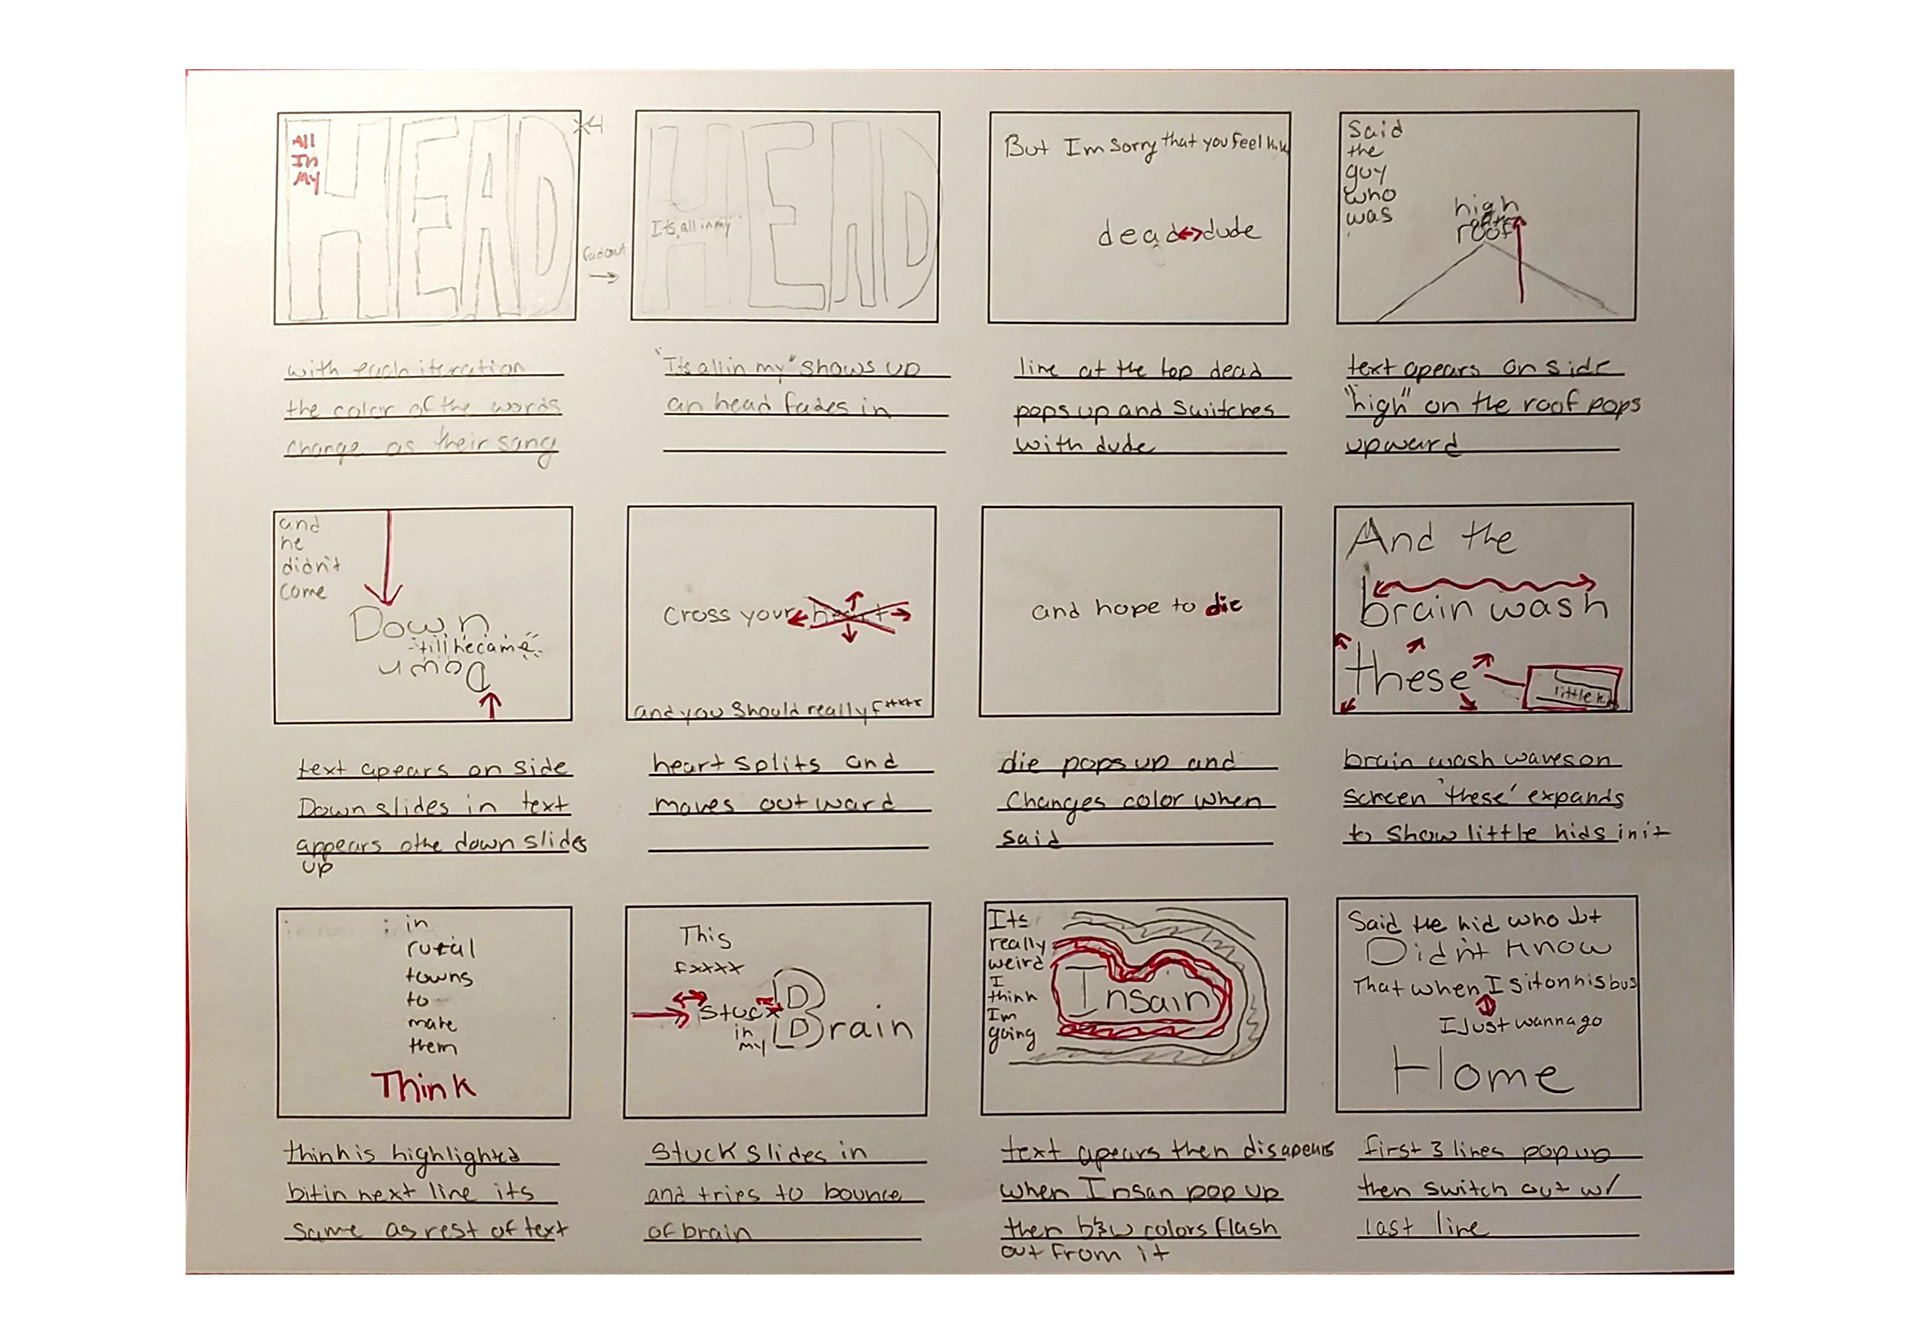 All
In
My
HEAD
x4
fadeout
It's all in my
HEAD
But Im sorry that you feel
dead dude
Said
the
guy
who
was
high
roof
with each iteration
the color of the words
change as their sang
"Its all in my" shows up
an head fades in
line at the top dead
pops up and switches
with dude
text apears on side
"high" on the roof pops
upward
and
he
didn't
come
Down
till became
Down
Cross your heart
and you should really f****
and hope to die
And the
brain wash
these
little
text apears on side
Down slides in text
appears othe down slides
up
heart splits and
moves outward
die pops up and
Changes color when
said
brain wash waves on
screen 'these' expands
to show little kids in it
in
rural
towns
to
make
them
Think
This
fxxxx
stuck
in
my
Brain
Its
really
weird
I
think
Im
going
Insain
Said the kid who
Didn't Know
That when I sit on his bus
I Just wanna go
Home
think is highlighted
bit in next line its
same as rest of text
Stuck slides in
and tries to bounce
of brain
text apears then disapears
when Insan pop up
then b&w colors flash
out from it
first 3 lines pop up
then switch out w/
last line